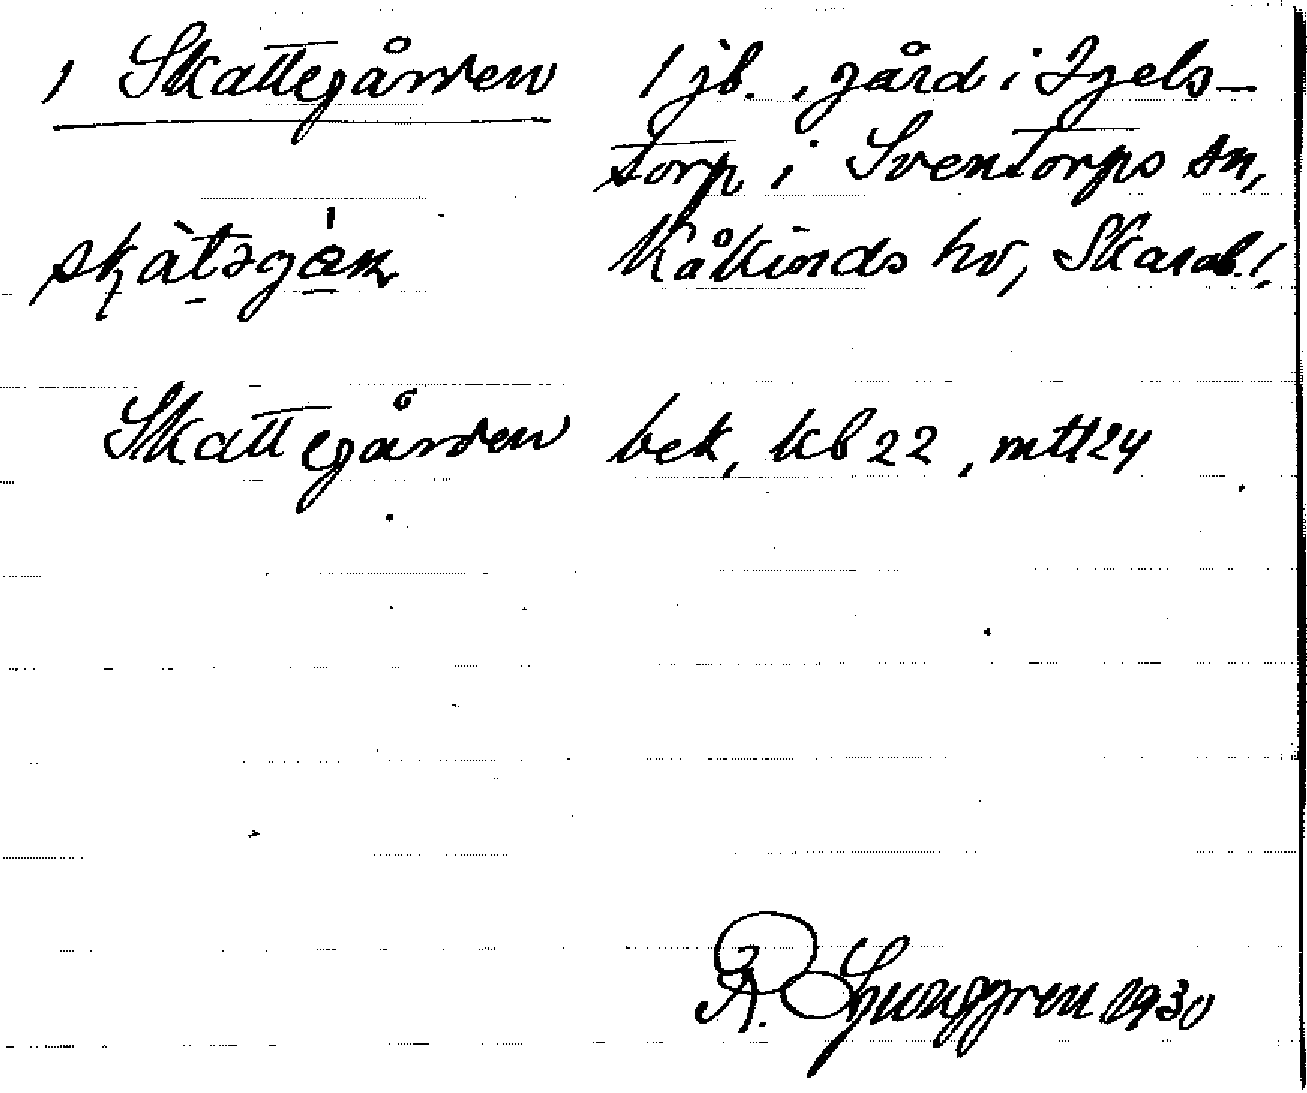 1 Skattegården 1 jb., gård i Igels-
torp i Sventorps sn,
skàtəgḁ́ɴ Kåkinds hd, Skarab. l.
Skattegården bek, kb 22, mtl 24
R. Ljunggren 1930